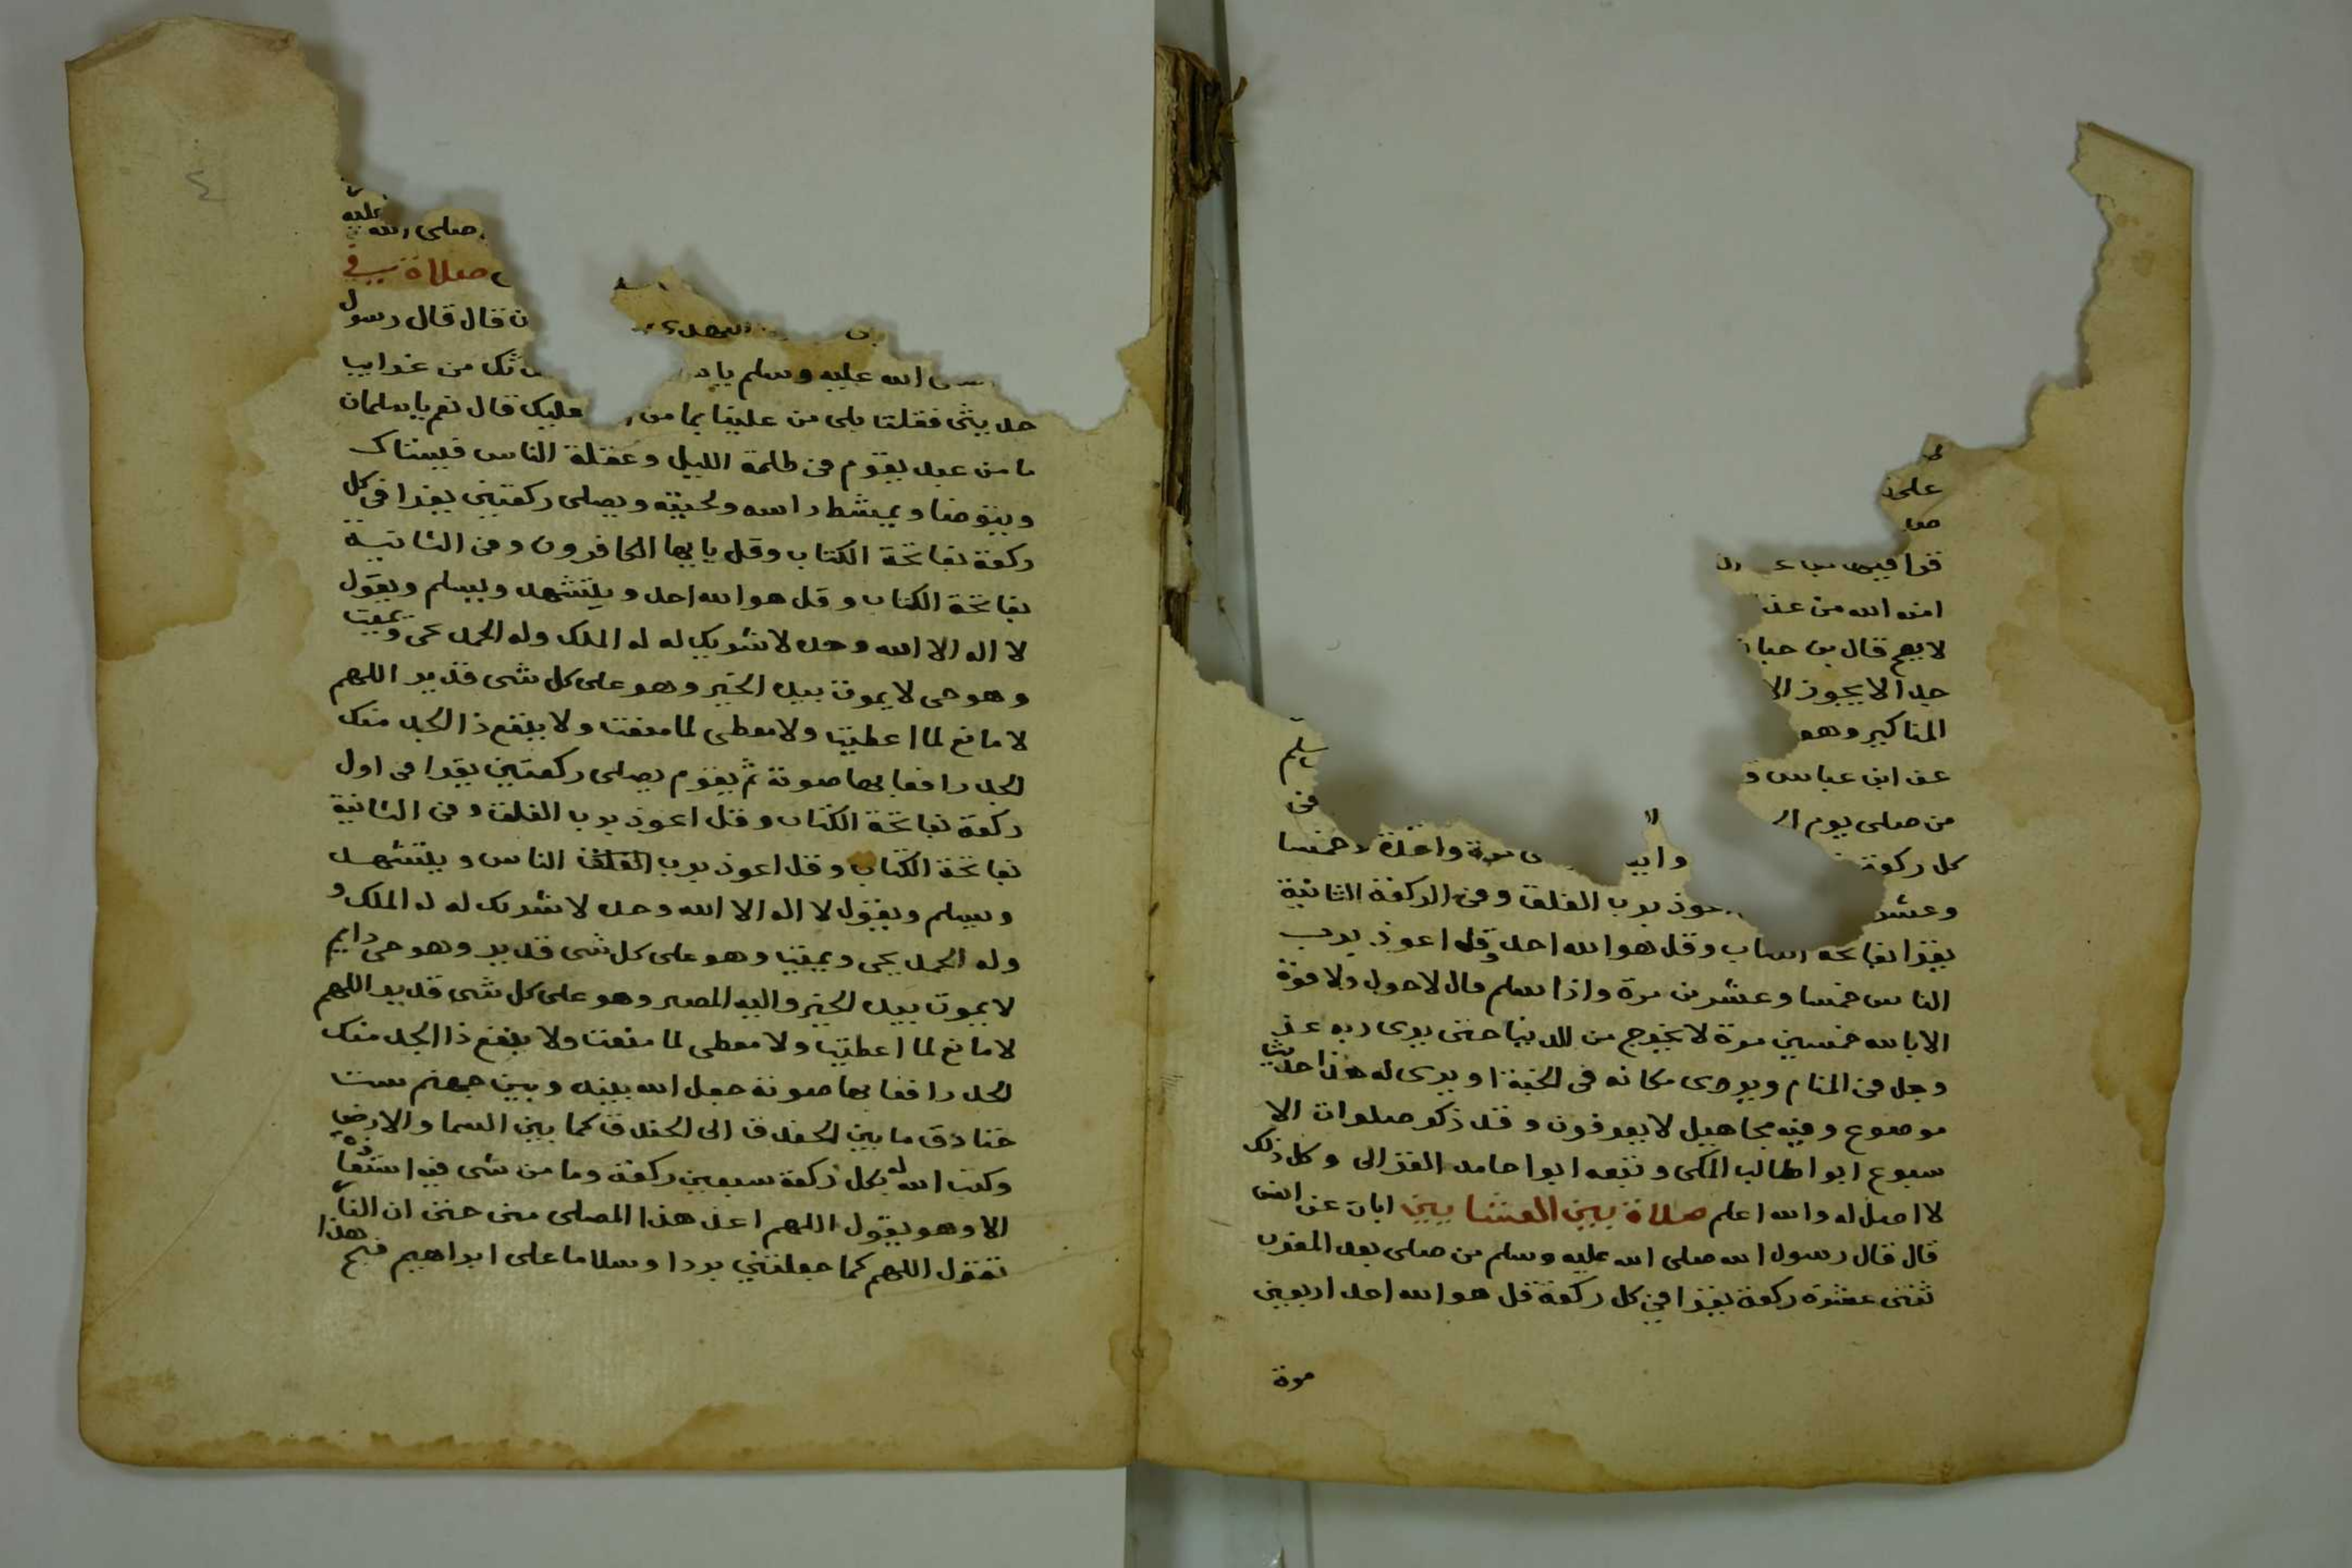 على
صو
قرا فيها
امنه الله من عذ
لا يصح قال بن حبا
جدا لا يجوز الا
المناكير وهو
سلم
عن ابن عباس
من صلى يوم ال
فى
كل ركعة مرة واحدة وخمسا
وعشر اعوذ برب الفلق وفى الركعة الثانية
يقرا بفاتحة الكتاب وقل هو الله احد وقل اعوذ برب
الناس خمسا وعشرين مرة واذا سلم قال لا حول ولا قوة
الا بالله خمسين مرة لا يخرج من الدنيا حتى يرى ربه عز
وجل فى المنام ويرى مكانه فى الجنة او يرى له هذا حديث
موضوع وفيه مجاهيل لا يعرفون وقد ذكر صلوات الا
سبوع ابوا طالب المكى وتبعه ابوا حامد الغزالى وكل ذلك
لا اصل له والله اعلم صلاة بين العشايين ابان عن انس
قال قال رسول الله صلى الله عليه وسلم من صلى بعد المغرب
ثنتى عشرة ركعة يقرا في كل ركعة قل هو الله احد اربعين
مرة
٤
عليه
صلى الله
صلاة في
ن قال قال رسول
الله عليه وسلم يا ثك من غرايب
حديثى فقلت بلى من علينا بما من عليك قال نعم يا سلمان
ما من عبد يقوم فى ظلمة الليل وغفلة الناس فيستاك
ويتوضا ويمشط راسه ولحيته ويصلى ركعتين يقرا فى كل
ركعة بفاتحة الكتاب وقل يايها الكافرون وفى الثانية
بفاتحة الكتاب وقل هو الله احد ويتشهد ويسلم ويقول
لا اله الا الله وحده لا شريك له له الملك وله الحمد يحى ويميت
وهو حى لا يموت بيده الخير وهو على كل شى قدير اللهم
لا مانع لما اعطيت ولا معطى لما منعت ولا ينفع ذا الجد منك
الجد رافعا بها صوته ثم يقوم يصلى ركعتين يقرا فى اول
ركعة بفاتحة الكتاب وقل اعوذ برب الفلق وفى الثانية
بفاتحة الكتاب وقل اعوذ برب الفلق الناس ويتشهد
ويسلم ويقول لا اله الا الله وحده لا شريك له له الملك و
وله الحمد يحى ويميت وهو على كل شى قدير وهو حى دايم
لا يموت بيده الخير واليه المصير وهو على كل شى قدير اللهم
لا مانع لما اعطيت ولا معطى لما منعت ولا ينفع ذا الجد منك
الجد رافعا بها صوته جعل الله بينه وبين جهنم ست
خنادق ما بين الخندق الى الخندق كما بين السما والارض
وكتب الله له بكل ركعة سبعين ركعة وما من شى فيه
الا وهو يقول اللهم اعذ هذا المصلى منى حتى ان النار
تقول اللهم كما جعلتنى بردا وسلاما على ابراهيم فنج هذا